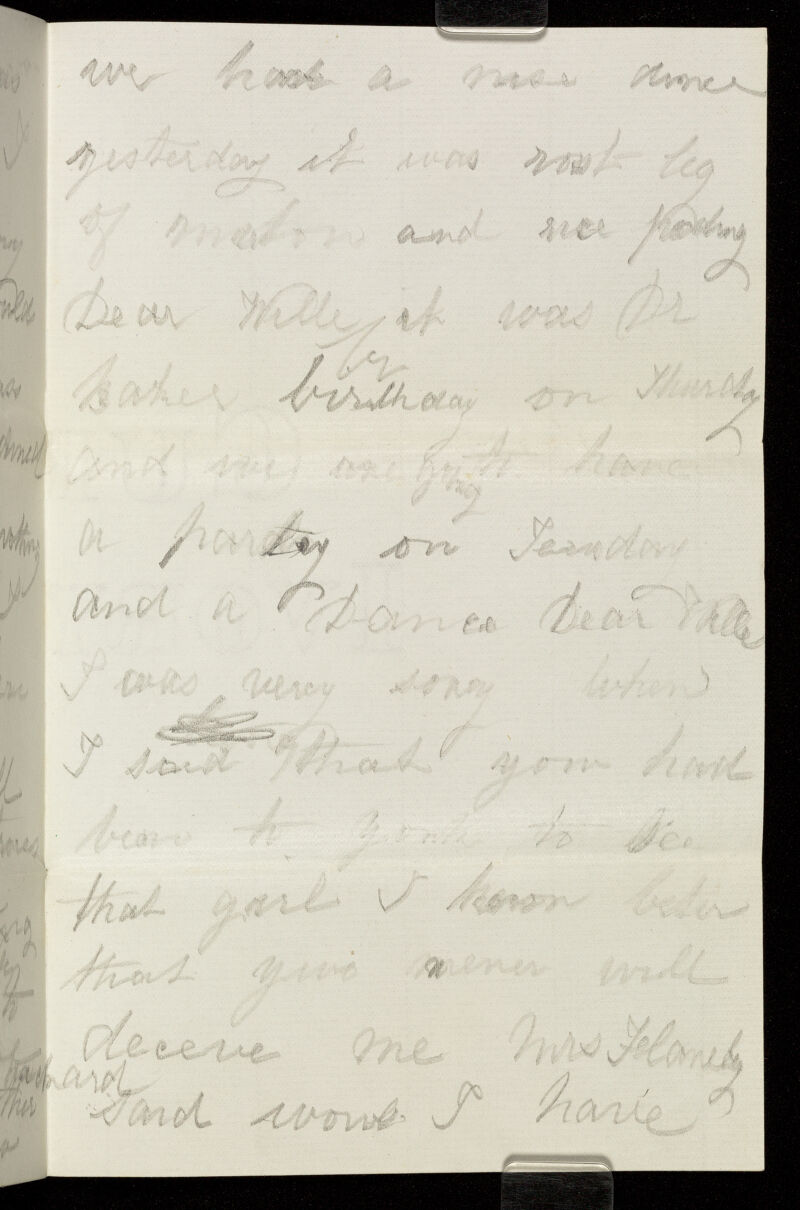 we had a nise dince
yesterday it was rost leg
of muton and rice pooding
Dear Wille it was Dr
baker birthday on Thursday
and we are going to have
a partay on Tesuday
and a Dance Dear Wille
I was verey sorey when
I said that you had
bean to York to see
that garl I know beter
that you never will
deceve me Mrs
said wont I have